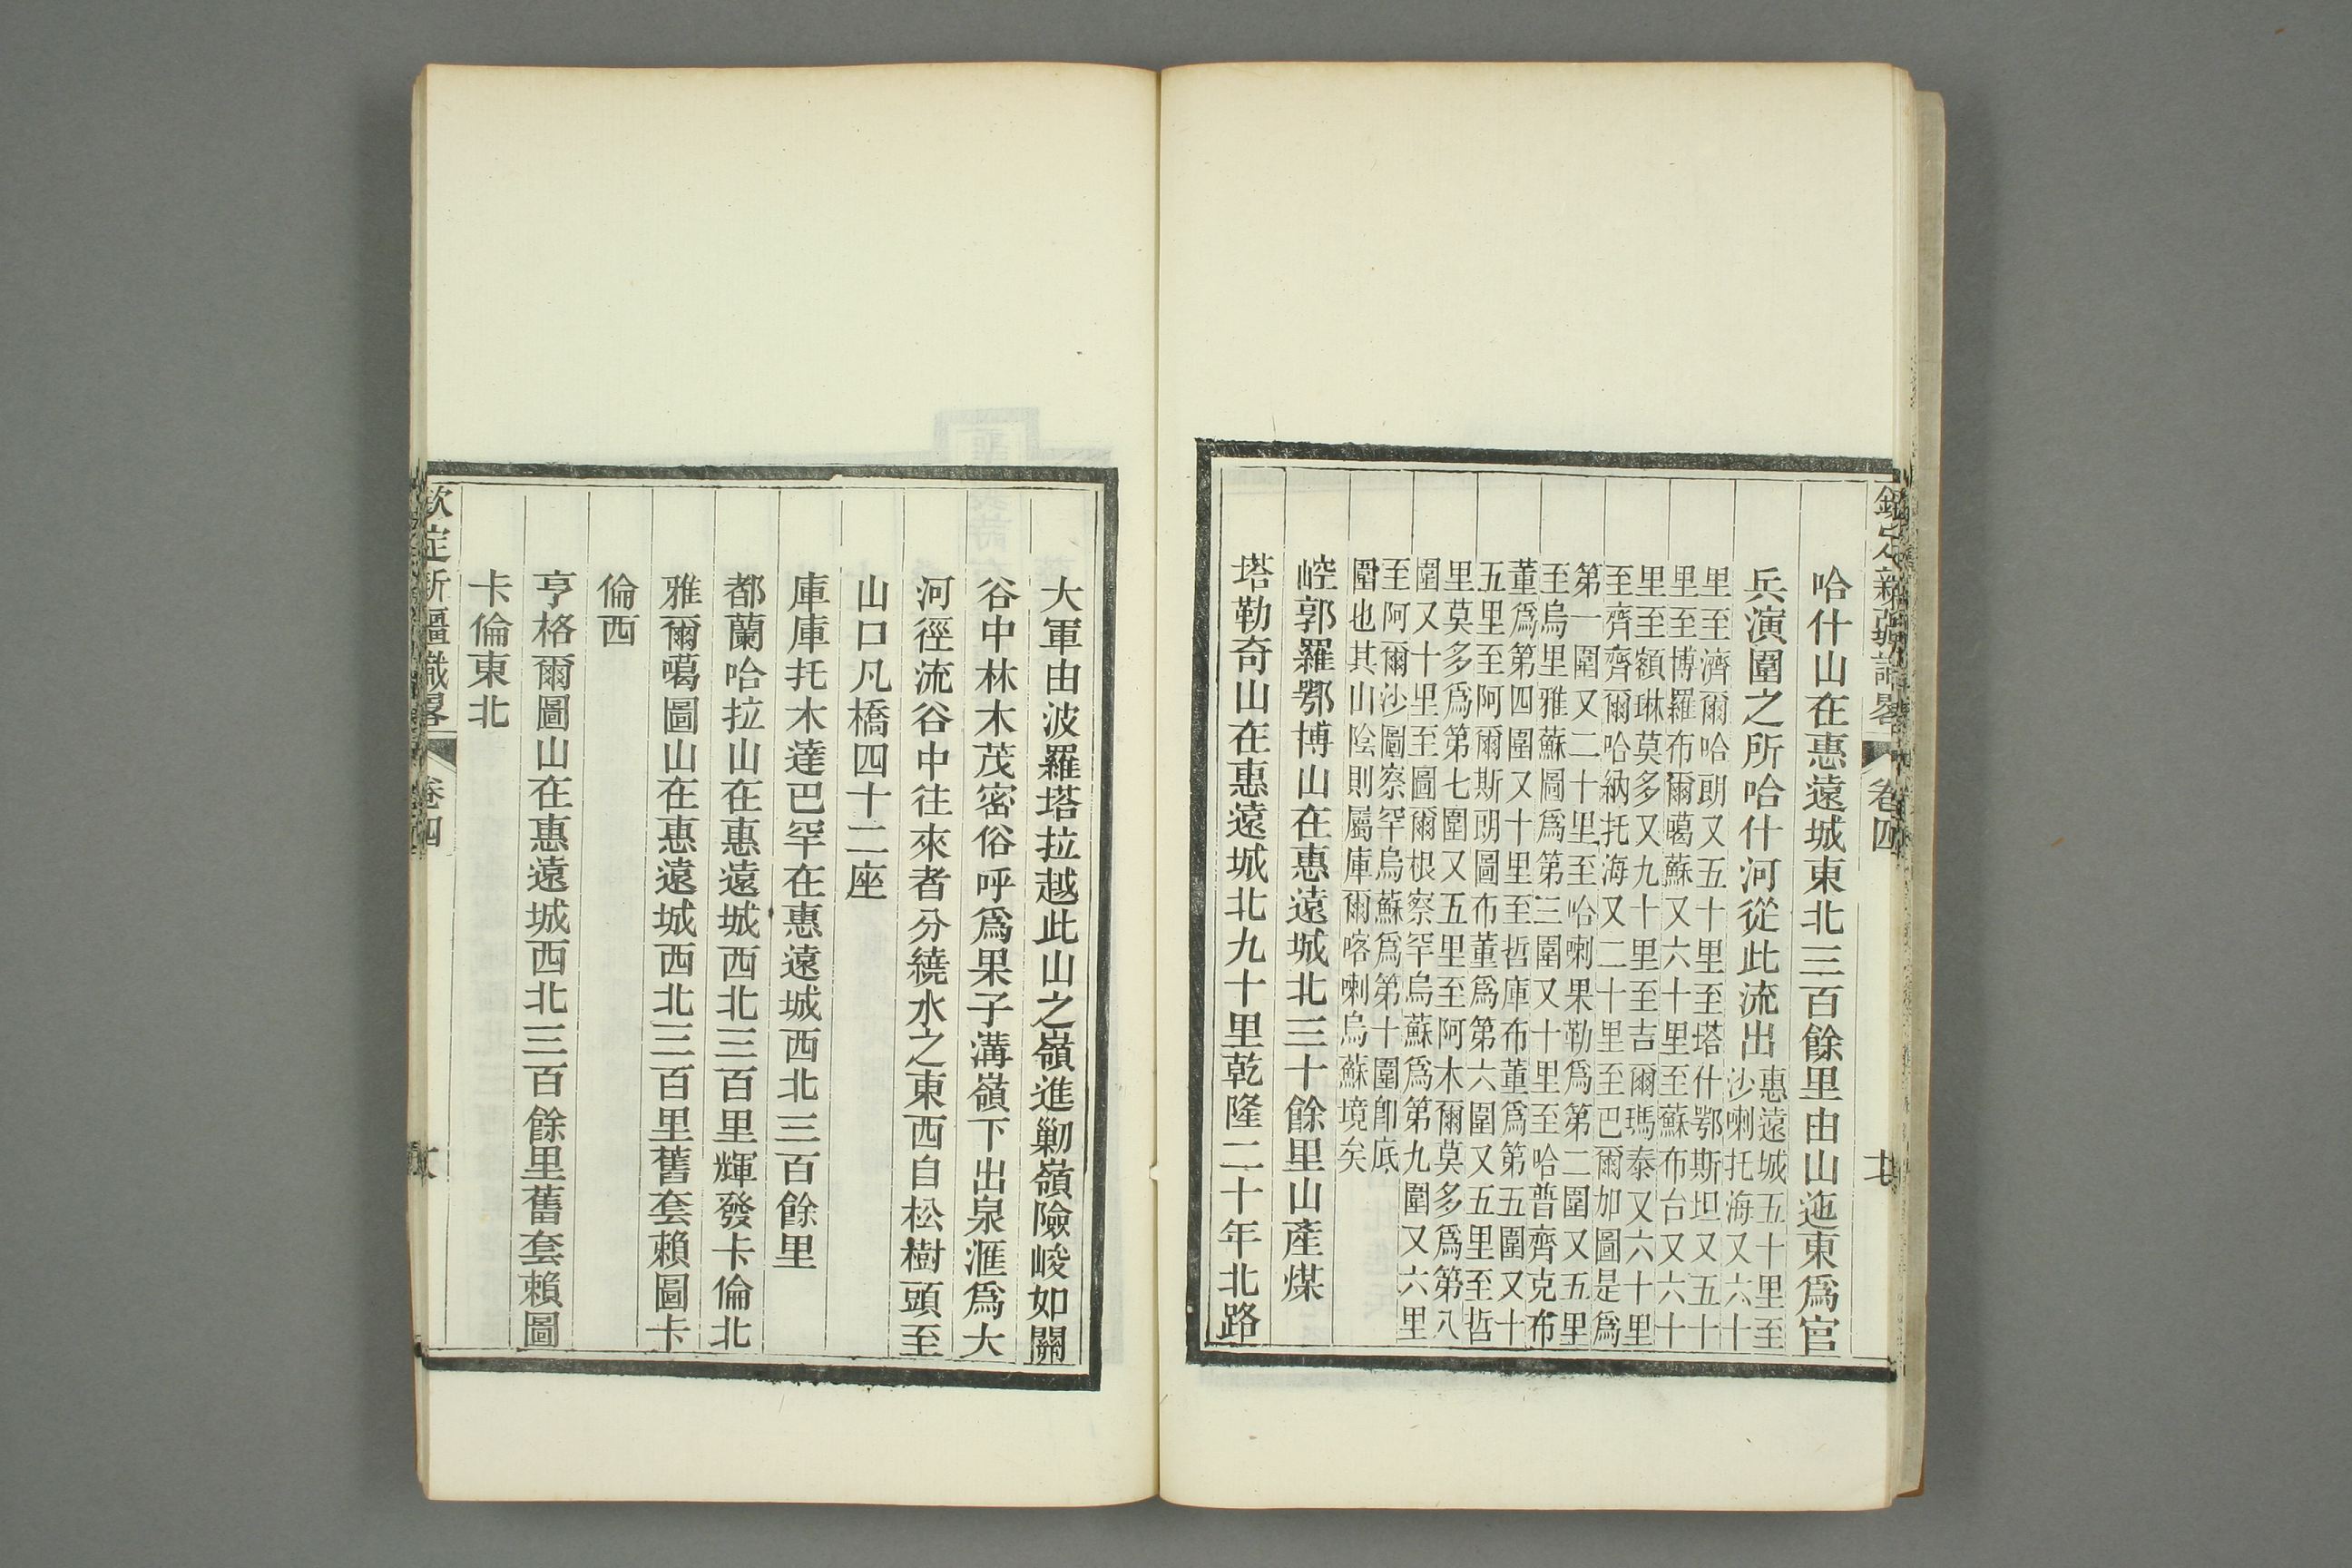 欽定新疆識畧 卷四
哈什山在惠遠城東北三百餘里由山迤東爲官
兵演圍之所哈什河從此流出
惠遠城五十里至
沙喇托海又六十
里至濟爾哈朗又五十里至塔什鄂斯坦又五十
里至博羅布爾噶蘇又六十里至蘇布台又六十
里至額琳莫多又九十里至吉爾瑪泰又六十里
至齊齊爾哈納托海又二十里至巴爾加圖是爲
第一圍又二十里至哈喇果勒爲第二圍又五里
至烏里雅蘇圖爲第三圍又十里至哈普齊克布
董爲第四圍又十里至哲庫布董爲第五圍又十
五里至阿爾斯朗圖布董爲第六圍又五里至哲
里莫多爲第七圍又五里至阿木爾莫多爲第八
圍又十里至圖爾根察罕烏蘇爲第九圍又六里
至阿爾沙圖察罕烏蘇爲第十圍卽底
圍也其山陰則屬庫爾喀喇烏蘇境矣
崆郭羅鄂博山在惠遠城北三十餘里山產煤
塔勒奇山在惠遠城北九十里乾隆二十年北路
大軍由波羅塔拉越此山之嶺進勦嶺險峻如關
谷中林木茂密俗呼爲果子溝嶺下出泉滙爲大
河徑流谷中往來者分繞水之東西自松樹頭至
山口凡橋四十二座
庫庫托木達巴罕在惠遠城西北三百餘里
都蘭哈拉山在惠遠城西北三百里輝發卡倫北
雅爾噶圖山在惠遠城西北三百里舊套賴圖卡
倫西
亨格爾圖山在惠遠城西北三百餘里舊套賴圖
卡倫東北
欽定新疆識畧 卷四